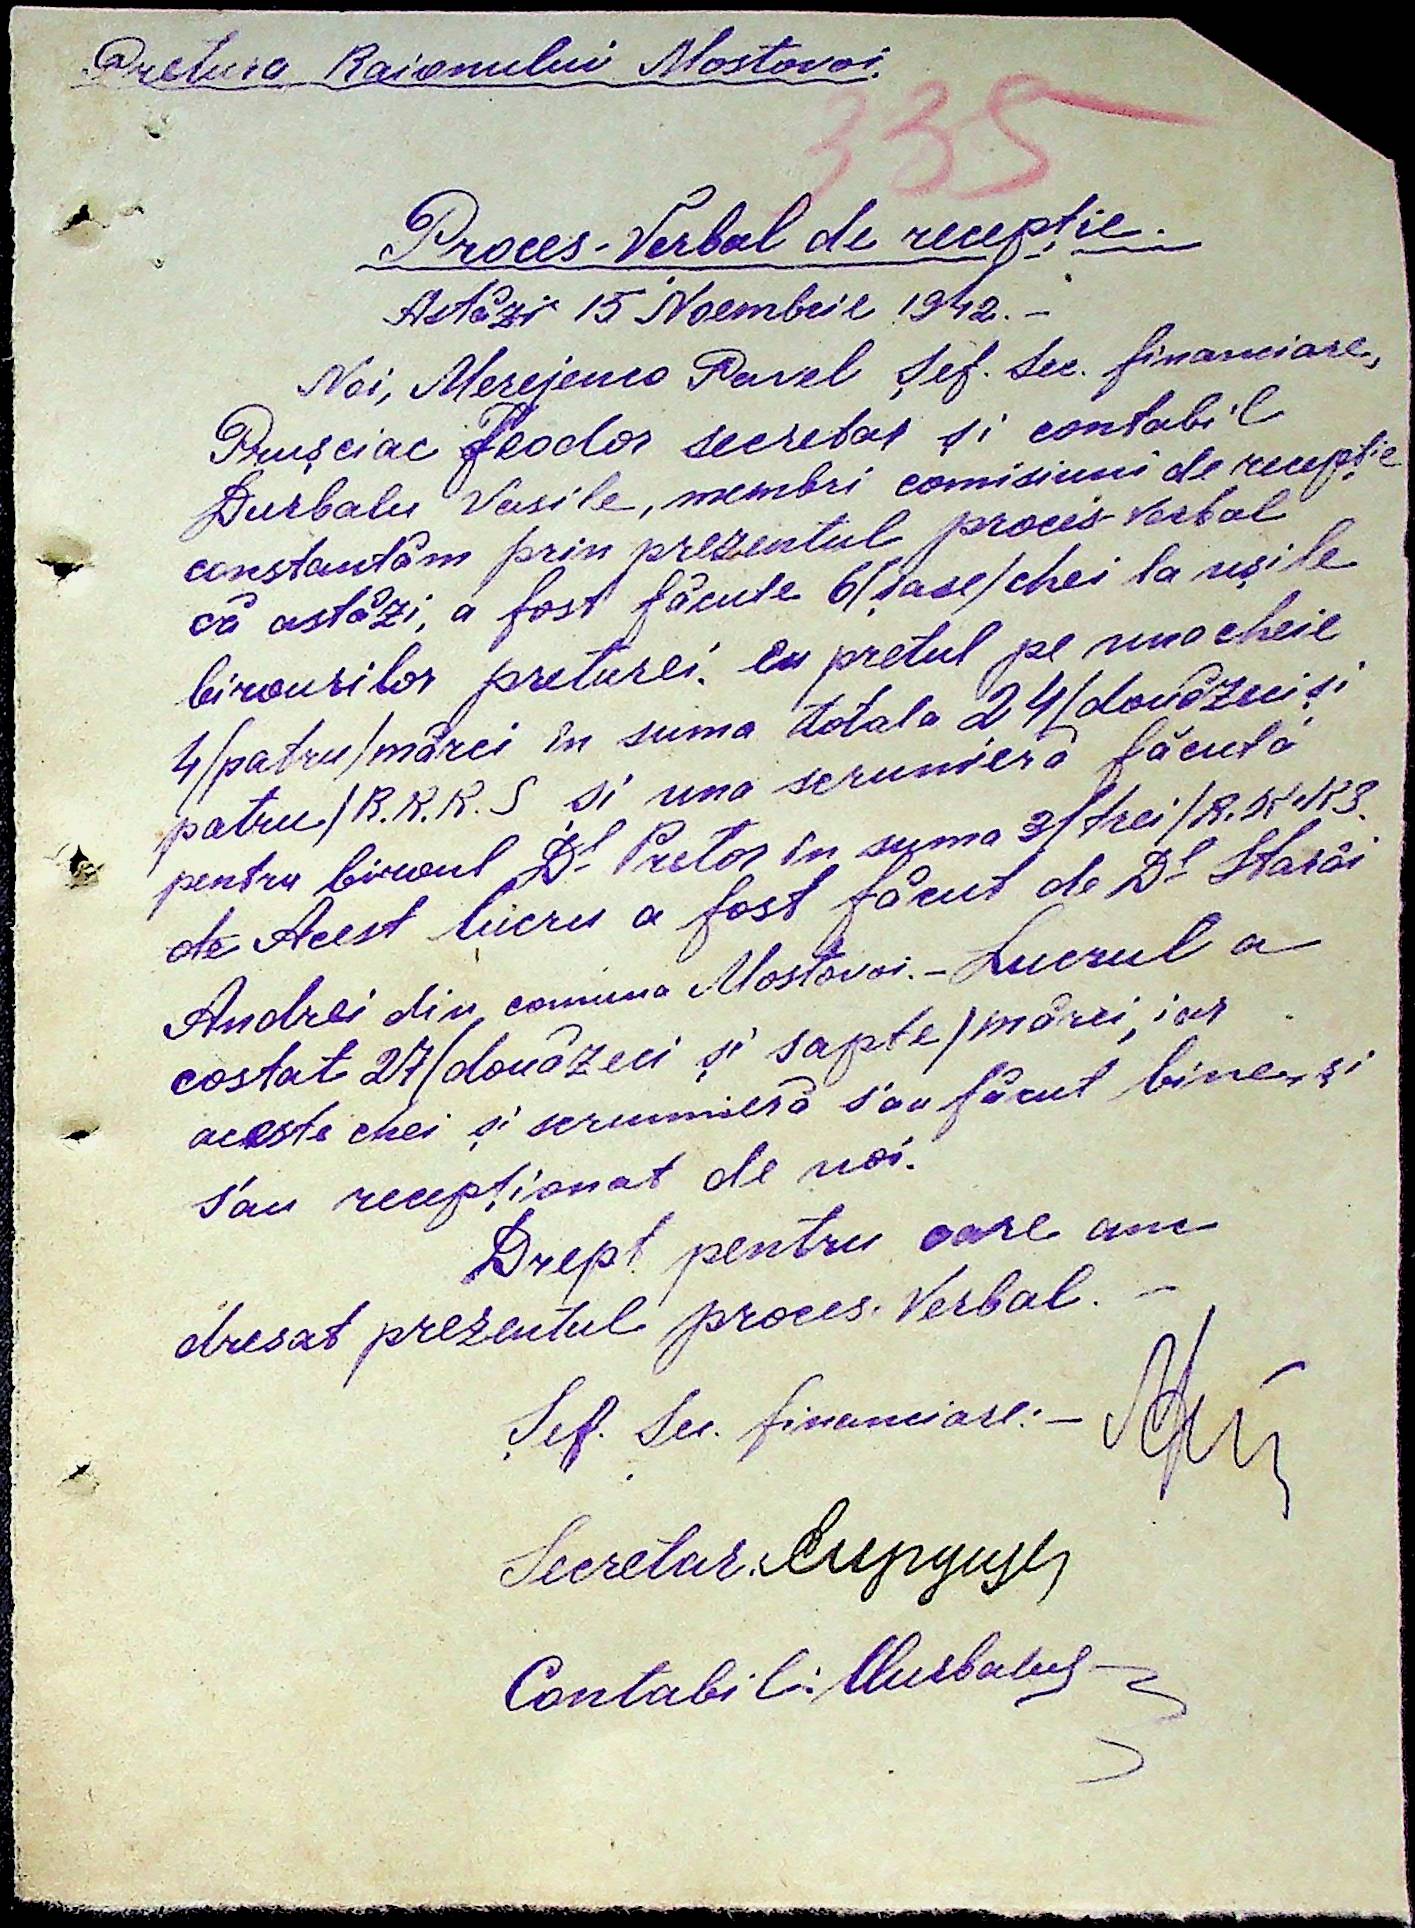 Pretura Raionului Mostovoi.
335
Proces-Verbal de recepție.
Astăzi 15 Noembrie 1942.-
Noi, Merejenco Pavel Șef. Sec. financiare,
Prușciac Feodor secretar și contabil
Durbalu Vasile, membri comisiuni de recepție
constantăm prin prezentul proces-verbal
că astăzi, a fost făcute 6/șase/chei la ușile
birourilor preturei. cu pretul pe una cheie
4/patru/mărci în suma totala 24/douăzeci și
patru/R.K.K.S și una scrumieră făcută
pentru biroul Dl Pretor în suma 3/trei/R.K.KS.
de Acest lucru a fost făcut de Dl
Andrei din comuna Mostovoi.- Lucrul a
costat 27/douăzeci și sapte/mărci, iar
aceste chei și scrumieră s'au făcut bine și
s'au recepționat de noi.
Drept pentru care am
dresat prezentul proces-Verbal. -
Șef. Sec. financiare:-
Secretar.
Contabil: